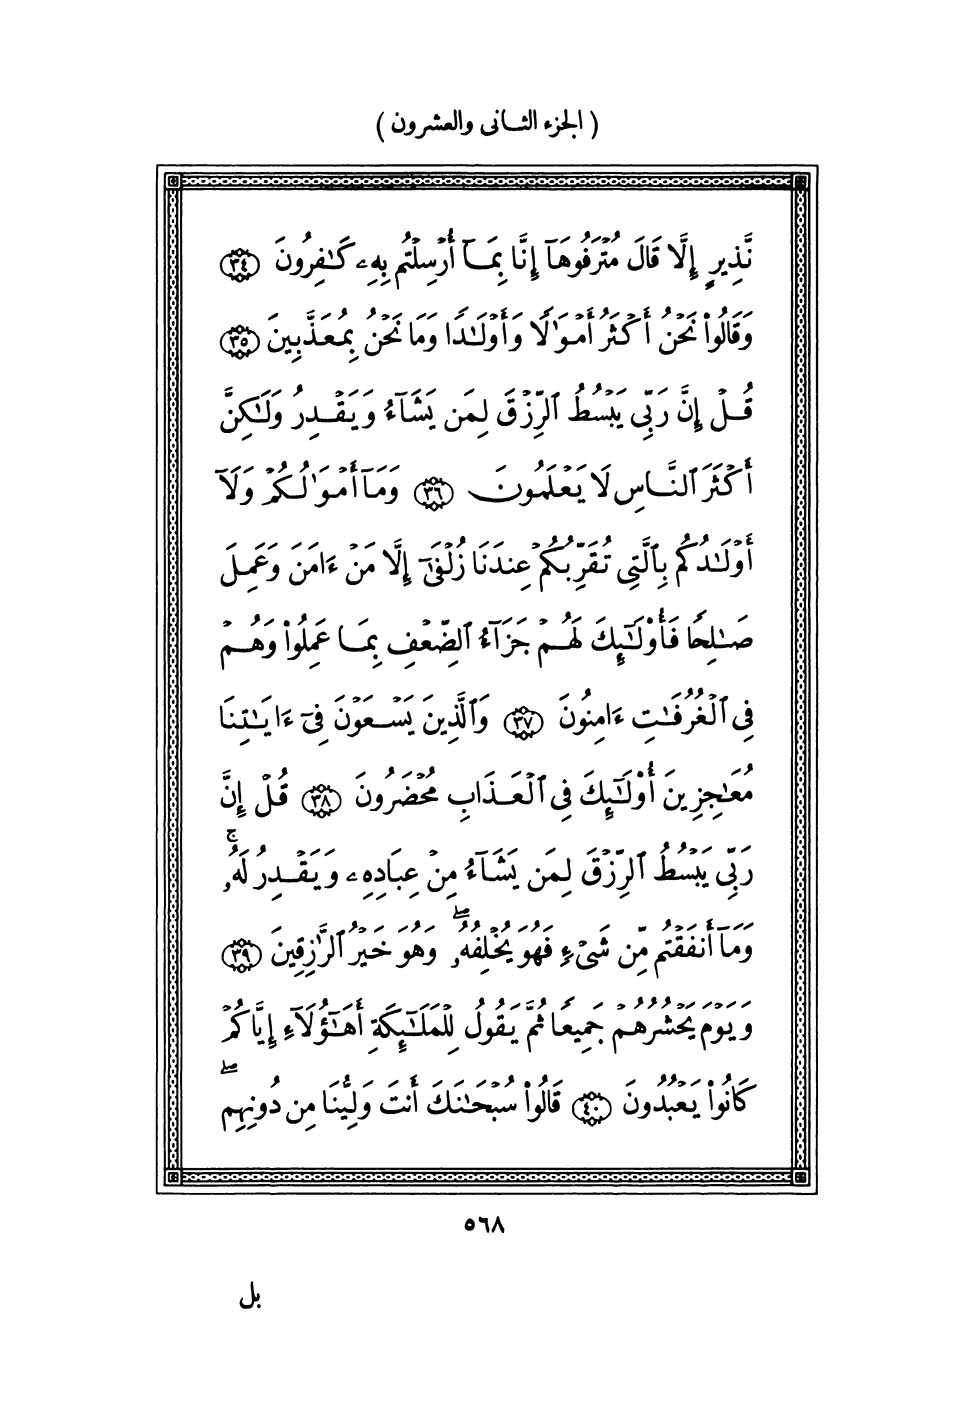 ( الجزء الثانى والعشرون )
نَّذِيرٍ إِلَّا قَالَ مُتْرَفُوهَآ إِنَّا بِمَآ أُرْسِلْتُم بِهِۦ كَـٰفِرُونَ ٣٤
وَقَالُوا۟ نَحْنُ أَكْثَرُ أَمْوَٰلًا وَأَوْلَـٰدًا وَمَا نَحْنُ بِمُعَذَّبِينَ ٣٥
قُلْ إِنَّ رَبِّى يَبْسُطُ ٱلرِّزْقَ لِمَن يَشَآءُ وَيَقْدِرُ وَلَـٰكِنَّ
أَكْثَرَ ٱلنَّاسِ لَا يَعْلَمُونَ ٣٦ وَمَآ أَمْوَٰلُكُمْ وَلَآ
أَوْلَـٰدُكُم بِٱلَّتِى تُقَرِّبُكُمْ عِندَنَا زُلْفَىٰٓ إِلَّا مَنْ ءَامَنَ وَعَمِلَ
صَـٰلِحًا فَأُو۟لَـٰٓئِكَ لَهُمْ جَزَآءُ ٱلضِّعْفِ بِمَا عَمِلُوا۟ وَهُمْ
فِى ٱلْغُرُفَـٰتِ ءَامِنُونَ ٣٧ وَٱلَّذِينَ يَسْعَوْنَ فِىٓ ءَايَـٰتِنَا
مُعَـٰجِزِينَ أُو۟لَـٰٓئِكَ فِى ٱلْعَذَابِ مُحْضَرُونَ ٣٨ قُلْ إِنَّ
رَبِّى يَبْسُطُ ٱلرِّزْقَ لِمَن يَشَآءُ مِنْ عِبَادِهِۦ وَيَقْدِرُ لَهُۥ ۚ
وَمَآ أَنفَقْتُم مِّن شَىْءٍ فَهُوَ يُخْلِفُهُۥ ۖ وَهُوَ خَيْرُ ٱلرَّٰزِقِينَ ٣٩
وَيَوْمَ يَحْشُرُهُمْ جَمِيعًا ثُمَّ يَقُولُ لِلْمَلَـٰٓئِكَةِ أَهَـٰٓؤُلَآءِ إِيَّاكُمْ
كَانُوا۟ يَعْبُدُونَ ٤٠ قَالُوا۟ سُبْحَـٰنَكَ أَنتَ وَلِيُّنَا مِن دُونِهِم ۖ
٥٦٨
بل